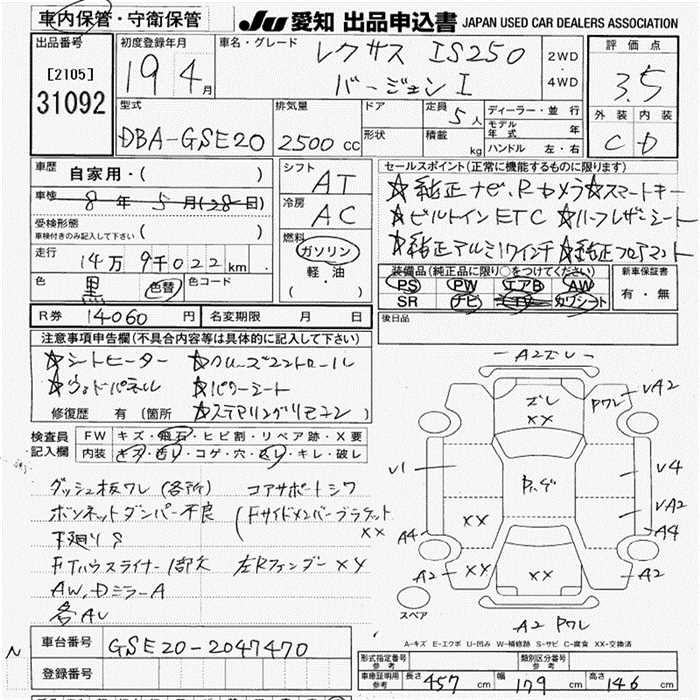 車内保管・守衛保管
JU 愛知 出品申込書 JAPAN USED CAR DEALERS ASSOCIATION
出品番号
[2105]
31092
初度登録年月
19 4月
車名・グレード
レクサス IS250
バージョン I
2WD
・
4WD
評価点
3.5
外装 内装
C D
型式
DBA-GSE20
排気量
2500 cc
ドア
形状
定員 5人
積載 kg
ディーラー・並行
モデル年式 年
ハンドル 左・右
車歴
自家用・( )
車検
8年 5月(28日)
受検形態
車検付きのみ記入して下さい ( )
走行
14万9千022km
色 黒 色替 色コード
シフト
AT
冷房
AC
燃料
ガソリン
軽・油
( ・ )
セールスポイント(正常に機能するものに限ります)
☆純正ナビ、Rカメラ☆スマートキー
☆ビルトインETC ☆ハーフレザーシート
☆純正アルミ17インチ☆純正フロアマット
装備品(純正品に限り○をつけてください)
PS PW エアB AW
SR ナビ カワシート
新車保証書
有・無
R券 14060円 名変期限 月 日
後日品
注意事項申告欄(不具合内容等は具体的に記入して下さい)
☆シートヒーター ☆クルーズコントロール
☆ウッドパネル ☆パワーシート
☆ステアリングリモコン
修復歴 有(箇所 )
検査員記入欄
FW キズ・飛石・ヒビ割・リペア跡・X要
内装 キズ・汚レ・コゲ・穴・スレ・キレ・破レ
ダッシュ板ワレ(各所) コアサポートシワ
ボンネットダンパー不良 (Fサイドメンバーブラケット
XX
下廻りS
FTハウスライナー1部欠 左Rフェンダー XY
AW,Dミラー A
各AU
A2ズレ
ズレ
XX
ワレ
VA2
V1
V4
XX
VA2
A4
A4
A2
XX
A2
スペア
A2 ワレ
A-キズ E-エクボ U-凹み W-補修跡 S-サビ C-腐食 XX-交換済
車台番号 GSE20-2047470
登録番号
形式指定番号 参考
類別区分番号 参考
車庫証明用 参考 長さ 457cm 幅 179cm 高さ 146cm
N